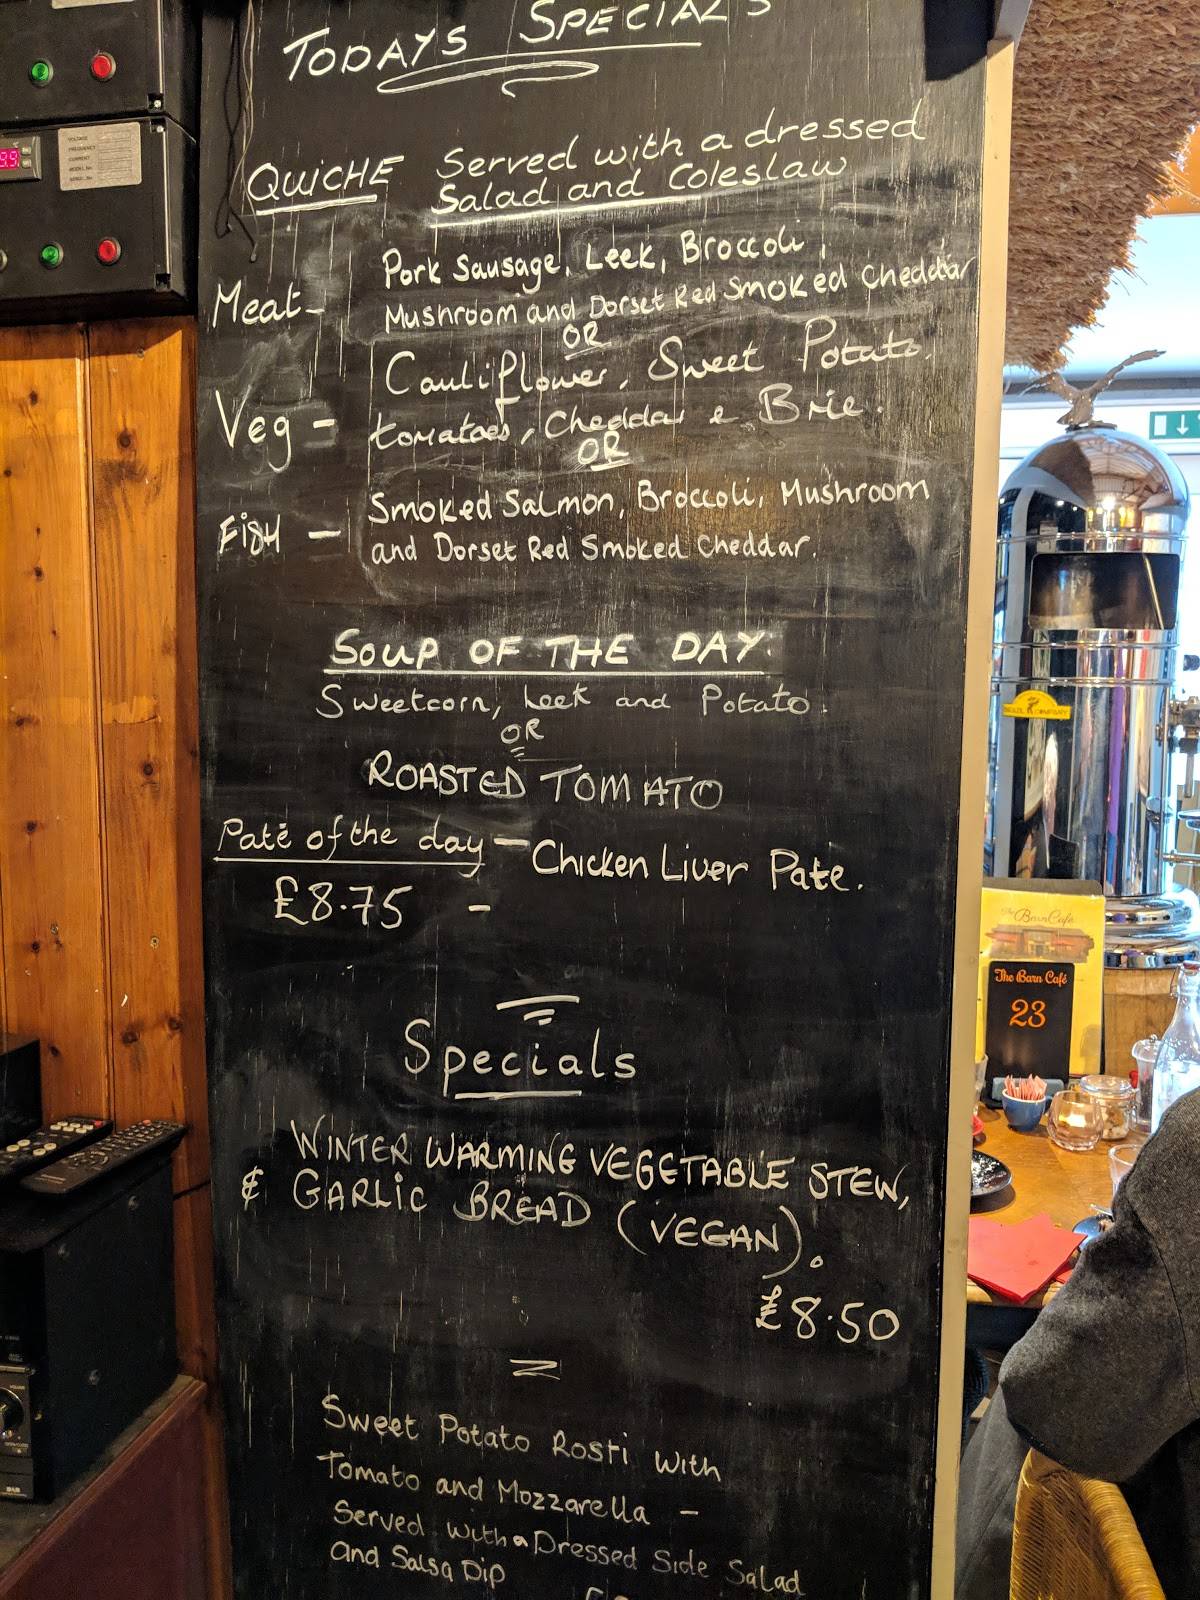 TODAYS SPECIALS
QUICHE Served with a dressed
Salad and Coleslaw
Meat - Pork Sausage, Leek, Broccoli,
Mushroom and Dorset Red Smoked Cheddar
OR
Veg - Cauliflower, Sweet Potato,
tomatoes, Cheddar & Brie.
OR
Fish - Smoked Salmon, Broccoli, Mushroom
and Dorset Red Smoked Cheddar.
SOUP OF THE DAY:
Sweetcorn, Leek and Potato.
OR
ROASTED TOMATO
Paté of the day - Chicken Liver Pate.
£8.75 -
Specials
WINTER WARMING VEGETABLE STEW,
& GARLIC BREAD (VEGAN).
£8.50
Sweet Potato Rosti with
Tomato and Mozzarella -
Served with a Dressed Side Salad
and Salsa Dip
VOLTAGE
FREQUENCY
CURRENT
The Barn Café
The Barn Café
23